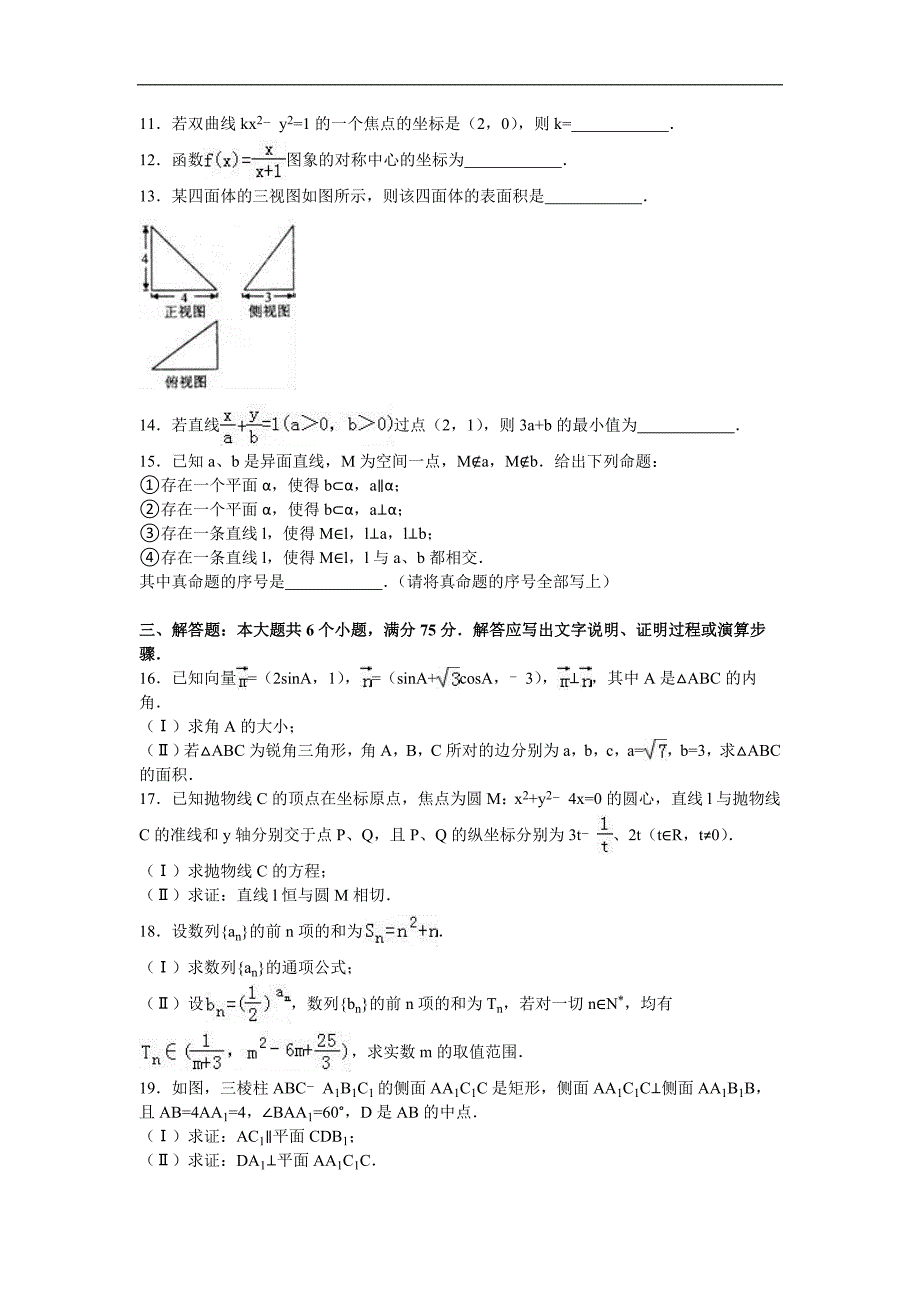 11．若双曲线 kx²﹣y²=1 的一个焦点的坐标是（2，0），则 k=____________．
12．函数f(x)=x/(x+1)图象的对称中心的坐标为____________．
13．某四面体的三视图如图所示，则该四面体的表面积是____________．
4
4
3
正视图
侧视图
俯视图
14．若直线x/a+y/b=1(a＞0，b＞0)过点（2，1），则 3a+b 的最小值为____________．
15．已知 a、b 是异面直线，M 为空间一点，M∉a，M∉b．给出下列命题：
①存在一个平面 α，使得 b⊂α，a∥α；
②存在一个平面 α，使得 b⊂α，a⊥α；
③存在一条直线 l，使得 M∈l，l⊥a，l⊥b；
④存在一条直线 l，使得 M∈l，l 与 a、b 都相交．
其中真命题的序号是____________．（请将真命题的序号全部写上）
三、解答题：本大题共 6 个小题，满分 75 分．解答应写出文字说明、证明过程或演算步
骤．
16．已知向量m→=（2sinA，1），n→=（sinA+√3cosA，﹣3），m→⊥n→，其中 A 是△ABC 的内
角．
（Ⅰ）求角 A 的大小；
（Ⅱ）若△ABC 为锐角三角形，角 A，B，C 所对的边分别为 a，b，c，a=√7，b=3，求△ABC
的面积．
17．已知抛物线 C 的顶点在坐标原点，焦点为圆 M：x²+y²﹣4x=0 的圆心，直线 l 与抛物线
C 的准线和 y 轴分别交于点 P、Q，且 P、Q 的纵坐标分别为 3t﹣1/t、2t（t∈R，t≠0）．
（Ⅰ）求抛物线 C 的方程；
（Ⅱ）求证：直线 l 恒与圆 M 相切．
18．设数列{aₙ}的前 n 项的和为Sₙ=n²+n．
（Ⅰ）求数列{aₙ}的通项公式；
（Ⅱ）设bₙ=(1/2)^aₙ，数列{bₙ}的前 n 项的和为 Tₙ，若对一切 n∈N*，均有
Tₙ∈(1/(m+3)，m²-6m+25/3)，求实数 m 的取值范围．
19．如图，三棱柱 ABC﹣A₁B₁C₁ 的侧面 AA₁C₁C 是矩形，侧面 AA₁C₁C⊥侧面 AA₁B₁B，
且 AB=4AA₁=4，∠BAA₁=60°，D 是 AB 的中点．
（Ⅰ）求证：AC₁∥平面 CDB₁；
（Ⅱ）求证：DA₁⊥平面 AA₁C₁C．